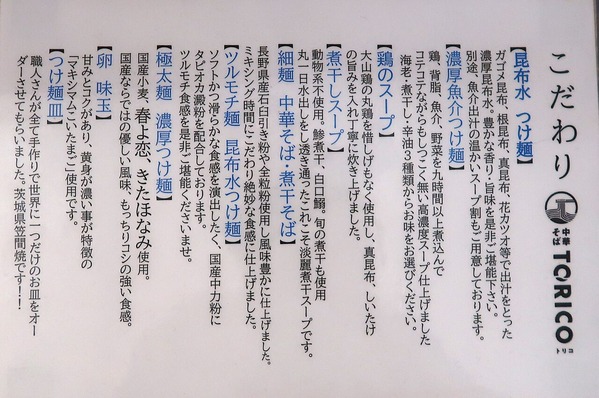 こだわり
中華そば
TORICO
トリコ
【昆布水 つけ麺】
ガゴメ昆布、根昆布、真昆布、花カツオ等で出汁をとった
濃厚昆布水。豊かな香り・旨味を是非ご堪能下さい。
別途、魚介出汁の温かいスープ割もご用意しております。
【濃厚魚介つけ麺】
鶏、背脂、魚介、野菜を九時間以上煮込んで
コテコテながらもしつこく無い高濃度スープ仕上げました
海老・煮干し・辛油3種類からお味をお選びください。
【鶏のスープ】
大山鶏の丸鶏を惜しげもなく使用し、真昆布、しいたけ
の旨みを入れ丁寧に炊き上げました。
【煮干しスープ】
動物系不使用。鯵煮干、白口鰯。旬の煮干も使用
丸一日水出しをし透き通ったこれこそ淡麗煮干スープです。
【細麺 中華そば・煮干そば】
長野県産石臼引き粉や全粒粉使用し風味豊かに仕上げました。
ミキシング時間にこだわり絶妙な食感に仕上げました。
【ツルモチ麺 昆布水つけ麺】
ソフトかつ滑らかな食感を演出したく、国産中力粉に
タピオカ澱粉を配合しております。
ツルモチ食感を是非ご堪能くださいませ。
【極太麺 濃厚つけ麺】
国産小麦、春よ恋、きたほなみ使用。
国産ならではの優しい風味、もっちりコシの強い食感。
【卵 味玉】
甘みとコクがあり、黄身が濃い事が特徴の
「マキシマムこいたまご」使用です。
【つけ麺皿】
職人さんが全て手作りで世界に一つだけのお皿をオー
ダーさせてもらいました。茨城県笠間焼です!!